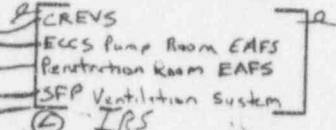 CREVS
ECCS Pump Room EAFS
Penetration Room EAFS
SFP Ventilation System
IRS